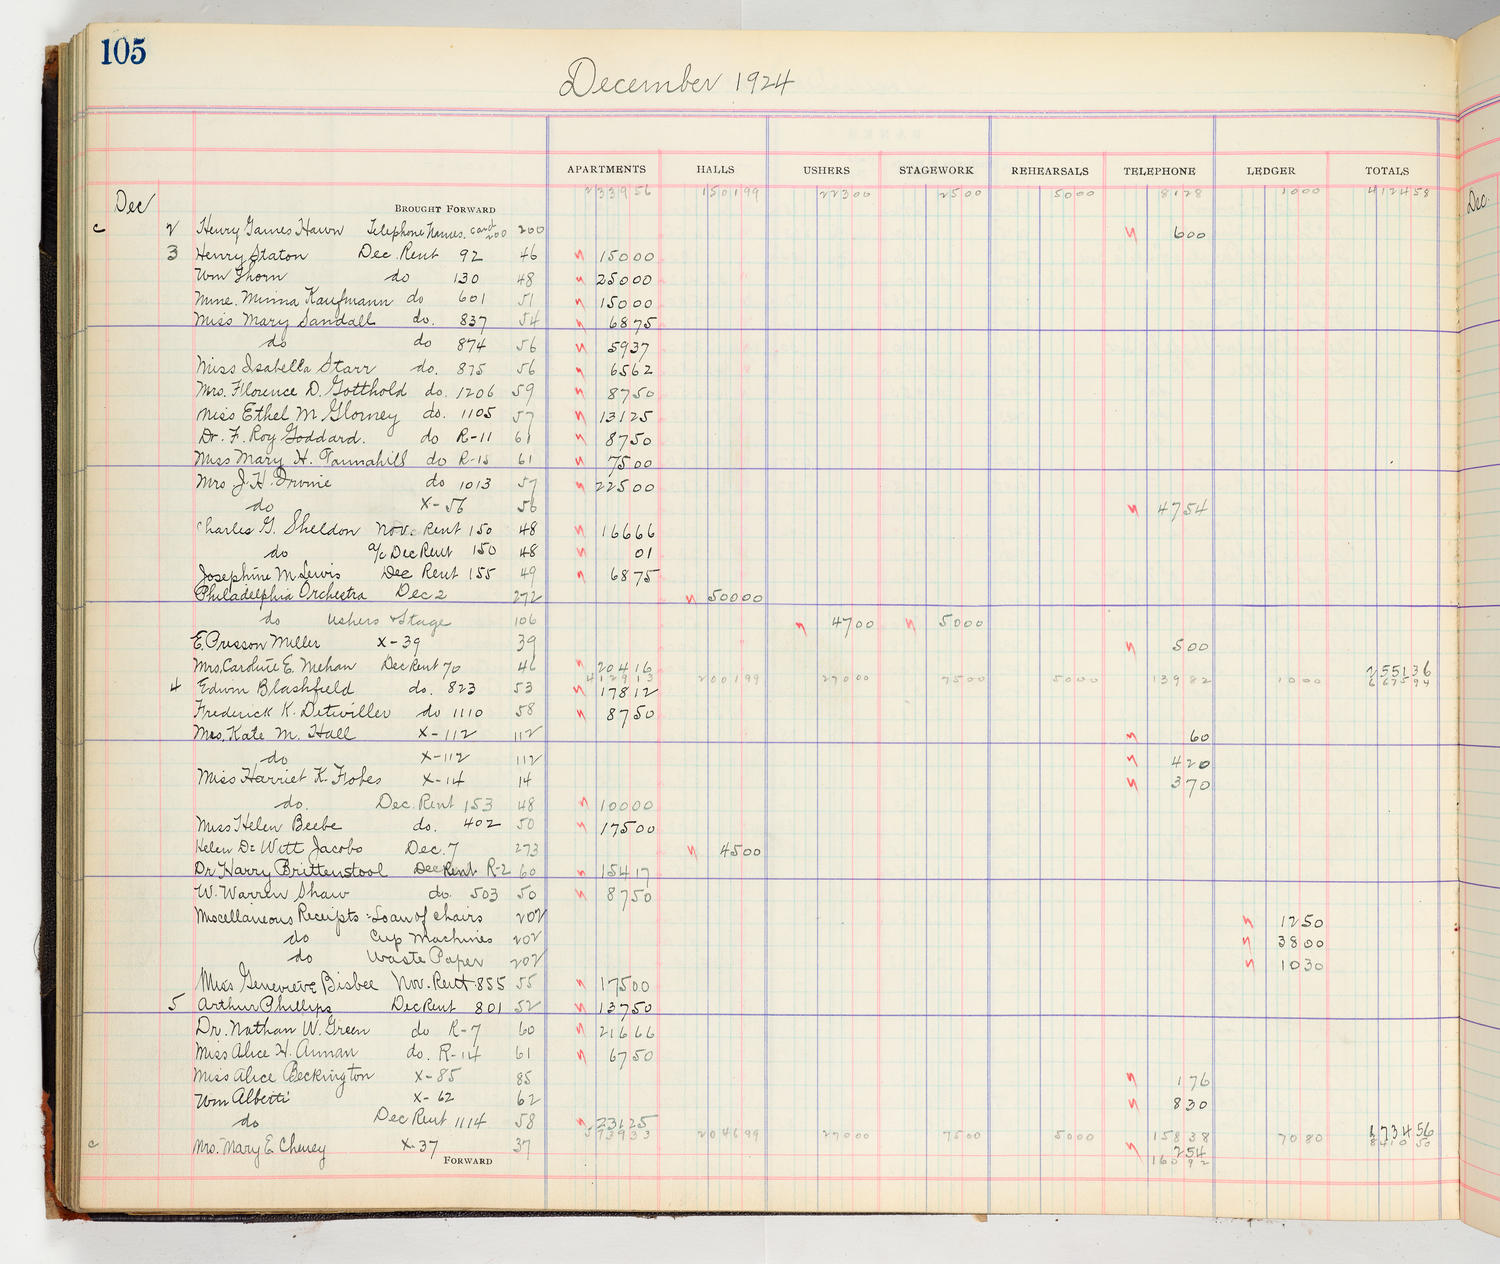 105
December 1924
APARTMENTS HALLS USHERS STAGEWORK REHEARSALS TELEPHONE LEDGER TOTALS
Dec BROUGHT FORWARD 233956 150199 22300 2500 5000 8128 1000 412458
c 2 Henry James Hawn Telephone Names. card 200 200 600
3 Henry Staton Dec. Rent 92 46 15000
Wm Thorn do 130 48 25000
Mme. Minna Kaufmann do 601 51 15000
Miss Mary Sandall do. 837 54 6875
do do 874 56 5937
Miss Isabella Starr do. 875 56 6562
Mrs. Florence D. Gotthold do. 1206 59 8750
Miss Ethel M. Glorney do. 1105 57 13125
Dr. F. Roy Goddard. do R-11 61 8750
Miss Mary H. Tannahill do R-15 61 7500
Mrs J. H. Irvine do 1013 57 22500
do X-56 56 4754
Charles G. Sheldon Nov. Rent 150 48 16666
do a/c Dec Rent 150 48 01
Josephine M Lewis Dec Rent 155 49 6875
Philadelphia Orchestra Dec 2 272 50000
do Ushers & Stage 106 4700 5000
E. Presson Miller X-39 39 500
Mrs. Caroline E. Mehan Dec Rent 70 46 20416 255136
412913 200199 27000 7500 5000 13982 1000 667594
4 Edwin Blashfield do. 823 53 17812
Frederick K. Detwiller do 1110 58 8750
Mrs. Kate M. Hall X-112 112 60
do X-112 112 420
Miss Harriet K. Fobes X-14 14 370
do. Dec. Rent 153 48 10000
Miss Helen Beebe do. 402 50 17500
Helen De Witt Jacobs Dec. 7 273 4500
Dr Harry Brittenstool Dec Rent R-2 60 15417
W. Warren Shaw do. 503 50 8750
Miscellaneous Receipts - Loan of chairs 202 1250
do Cup Machines 202 3800
do Waste Paper 202 1030
Miss Genevieve Bisbee Nov. Rent 855 55 17500
5 Arthur Phillips Dec Rent 801 52 13750
Dr. Nathan W. Green do R-7 60 21666
Miss Alice H. Annan do. R-14 61 6750
Miss Alice Beckington X-85 85 176
Wm Alberti X-62 62 830
do Dec Rent 1114 58 23125
573933 204699 27000 7500 5000 15838 7080 173456
c Mrs. Mary E. Cheney X-37 37 254 841050
FORWARD 16092
Dec.